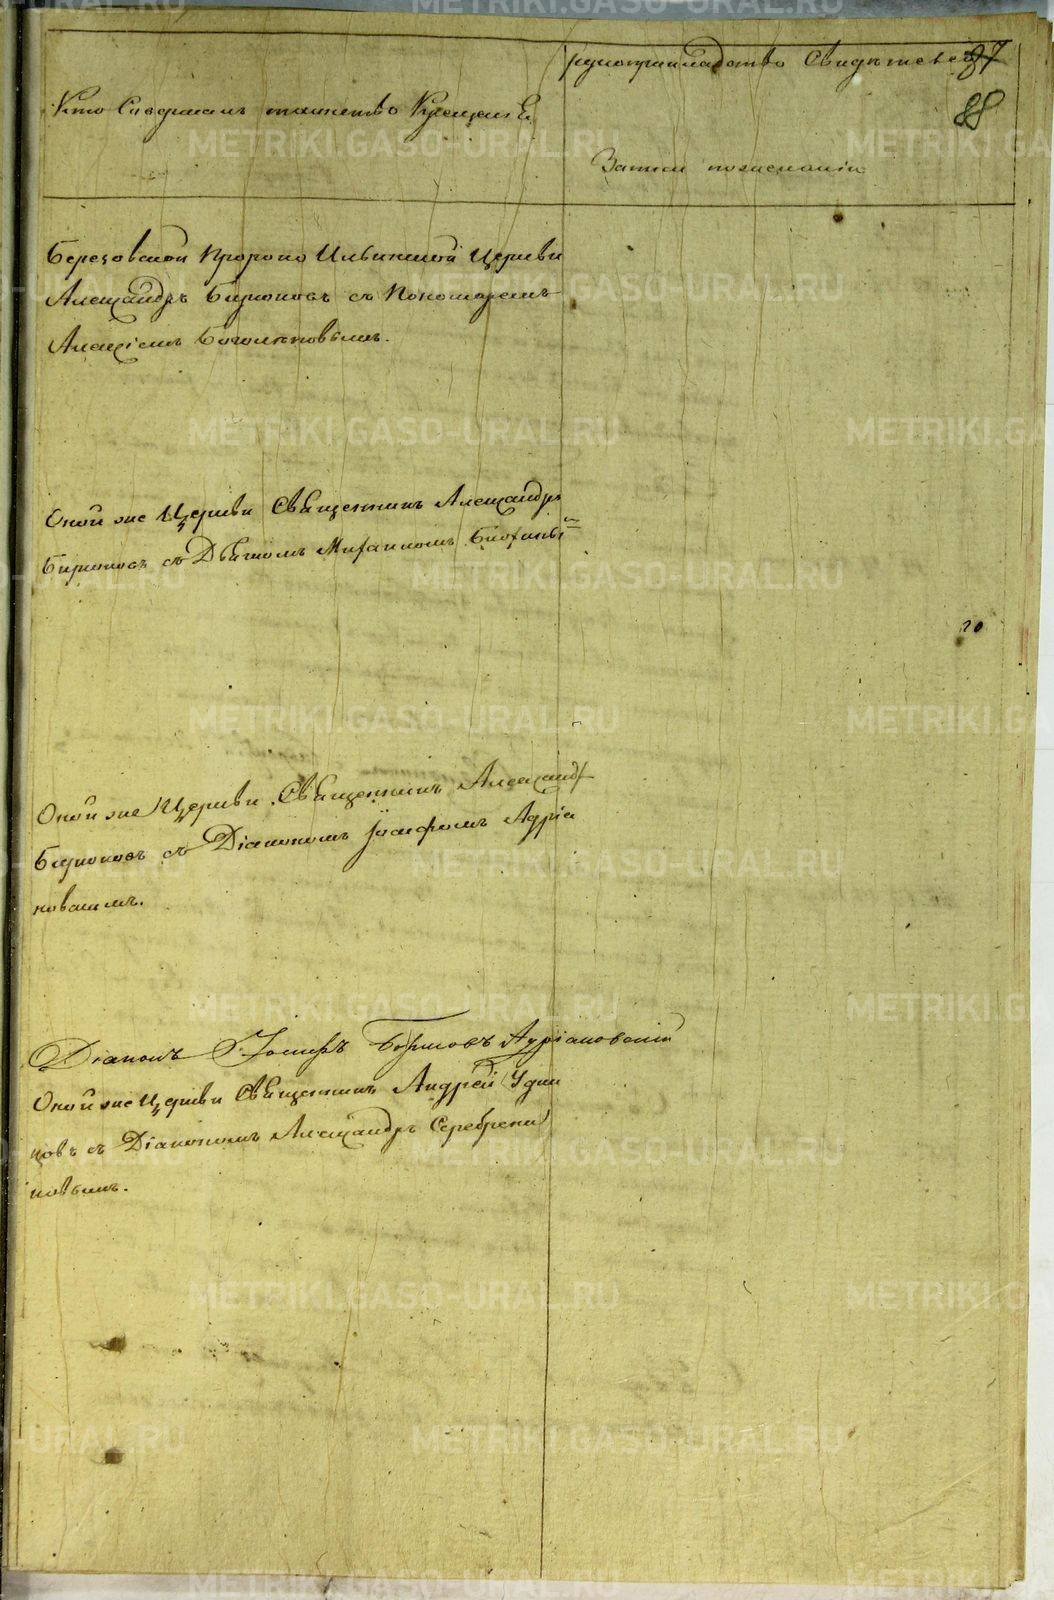 Кто Совершалъ таинство Крещенiе
рукоприкладство Свидѣтелей
87
88
Записи по желанiю
Березовской Пророко Ильинской Церкви
Александръ Бирюковъ съ Пономаремъ
Алексiемъ Боголеповымъ.
Оной же Церкви Священникъ Александръ
Бирюковъ съ Дьячкомъ
20
Оной же Церкви Священникъ Александр
Бирюковъ съ Дiакономъ Iосифомъ Адрiа
новскимъ.
Дiаконъ Iосифъ Адрiановскiй
Оной же Церкви Священникъ Андрей Удин
цовъ съ Дiакономъ Александръ Серебрени
ковымъ.
METRIKI.GASO-URAL.RU